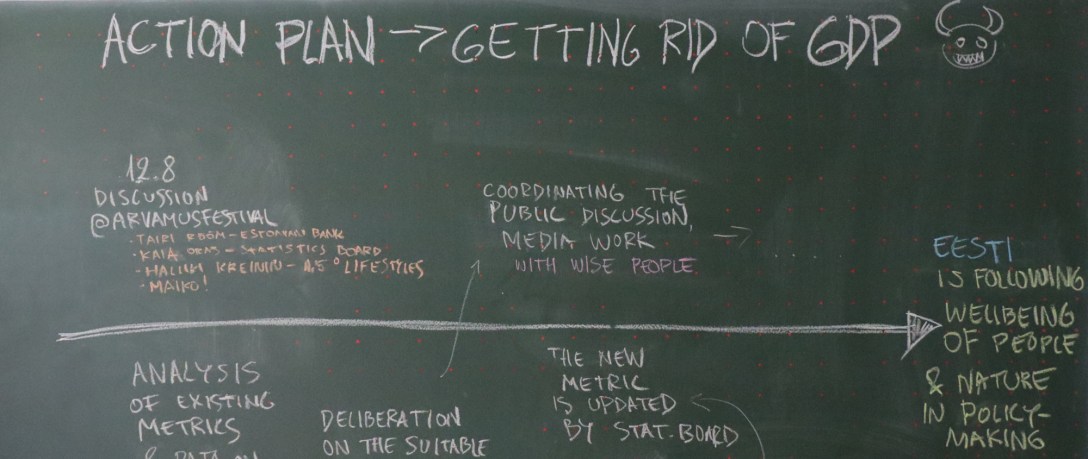 ACTION PLAN → GETTING RID OF GDP
12.8
DISCUSSION
@ARVAMUSFESTIVAL
· TAIRI RÕÕM - ESTONIAN BANK
· KAIA ORAS - STATISTICS BOARD
- KREININ - 1,5° LIFESTYLES
· MAIKO!
COORDINATING THE
PUBLIC DISCUSSION,
MEDIA WORK
WITH WISE PEOPLE
ANALYSIS
OF EXISTING
METRICS
DELIBERATION
ON THE SUITABLE
THE NEW
METRIC
IS UPDATED
BY STAT. BOARD
EESTI
IS FOLLOWING
WELLBEING
OF PEOPLE
& NATURE
IN POLICY-
MAKING